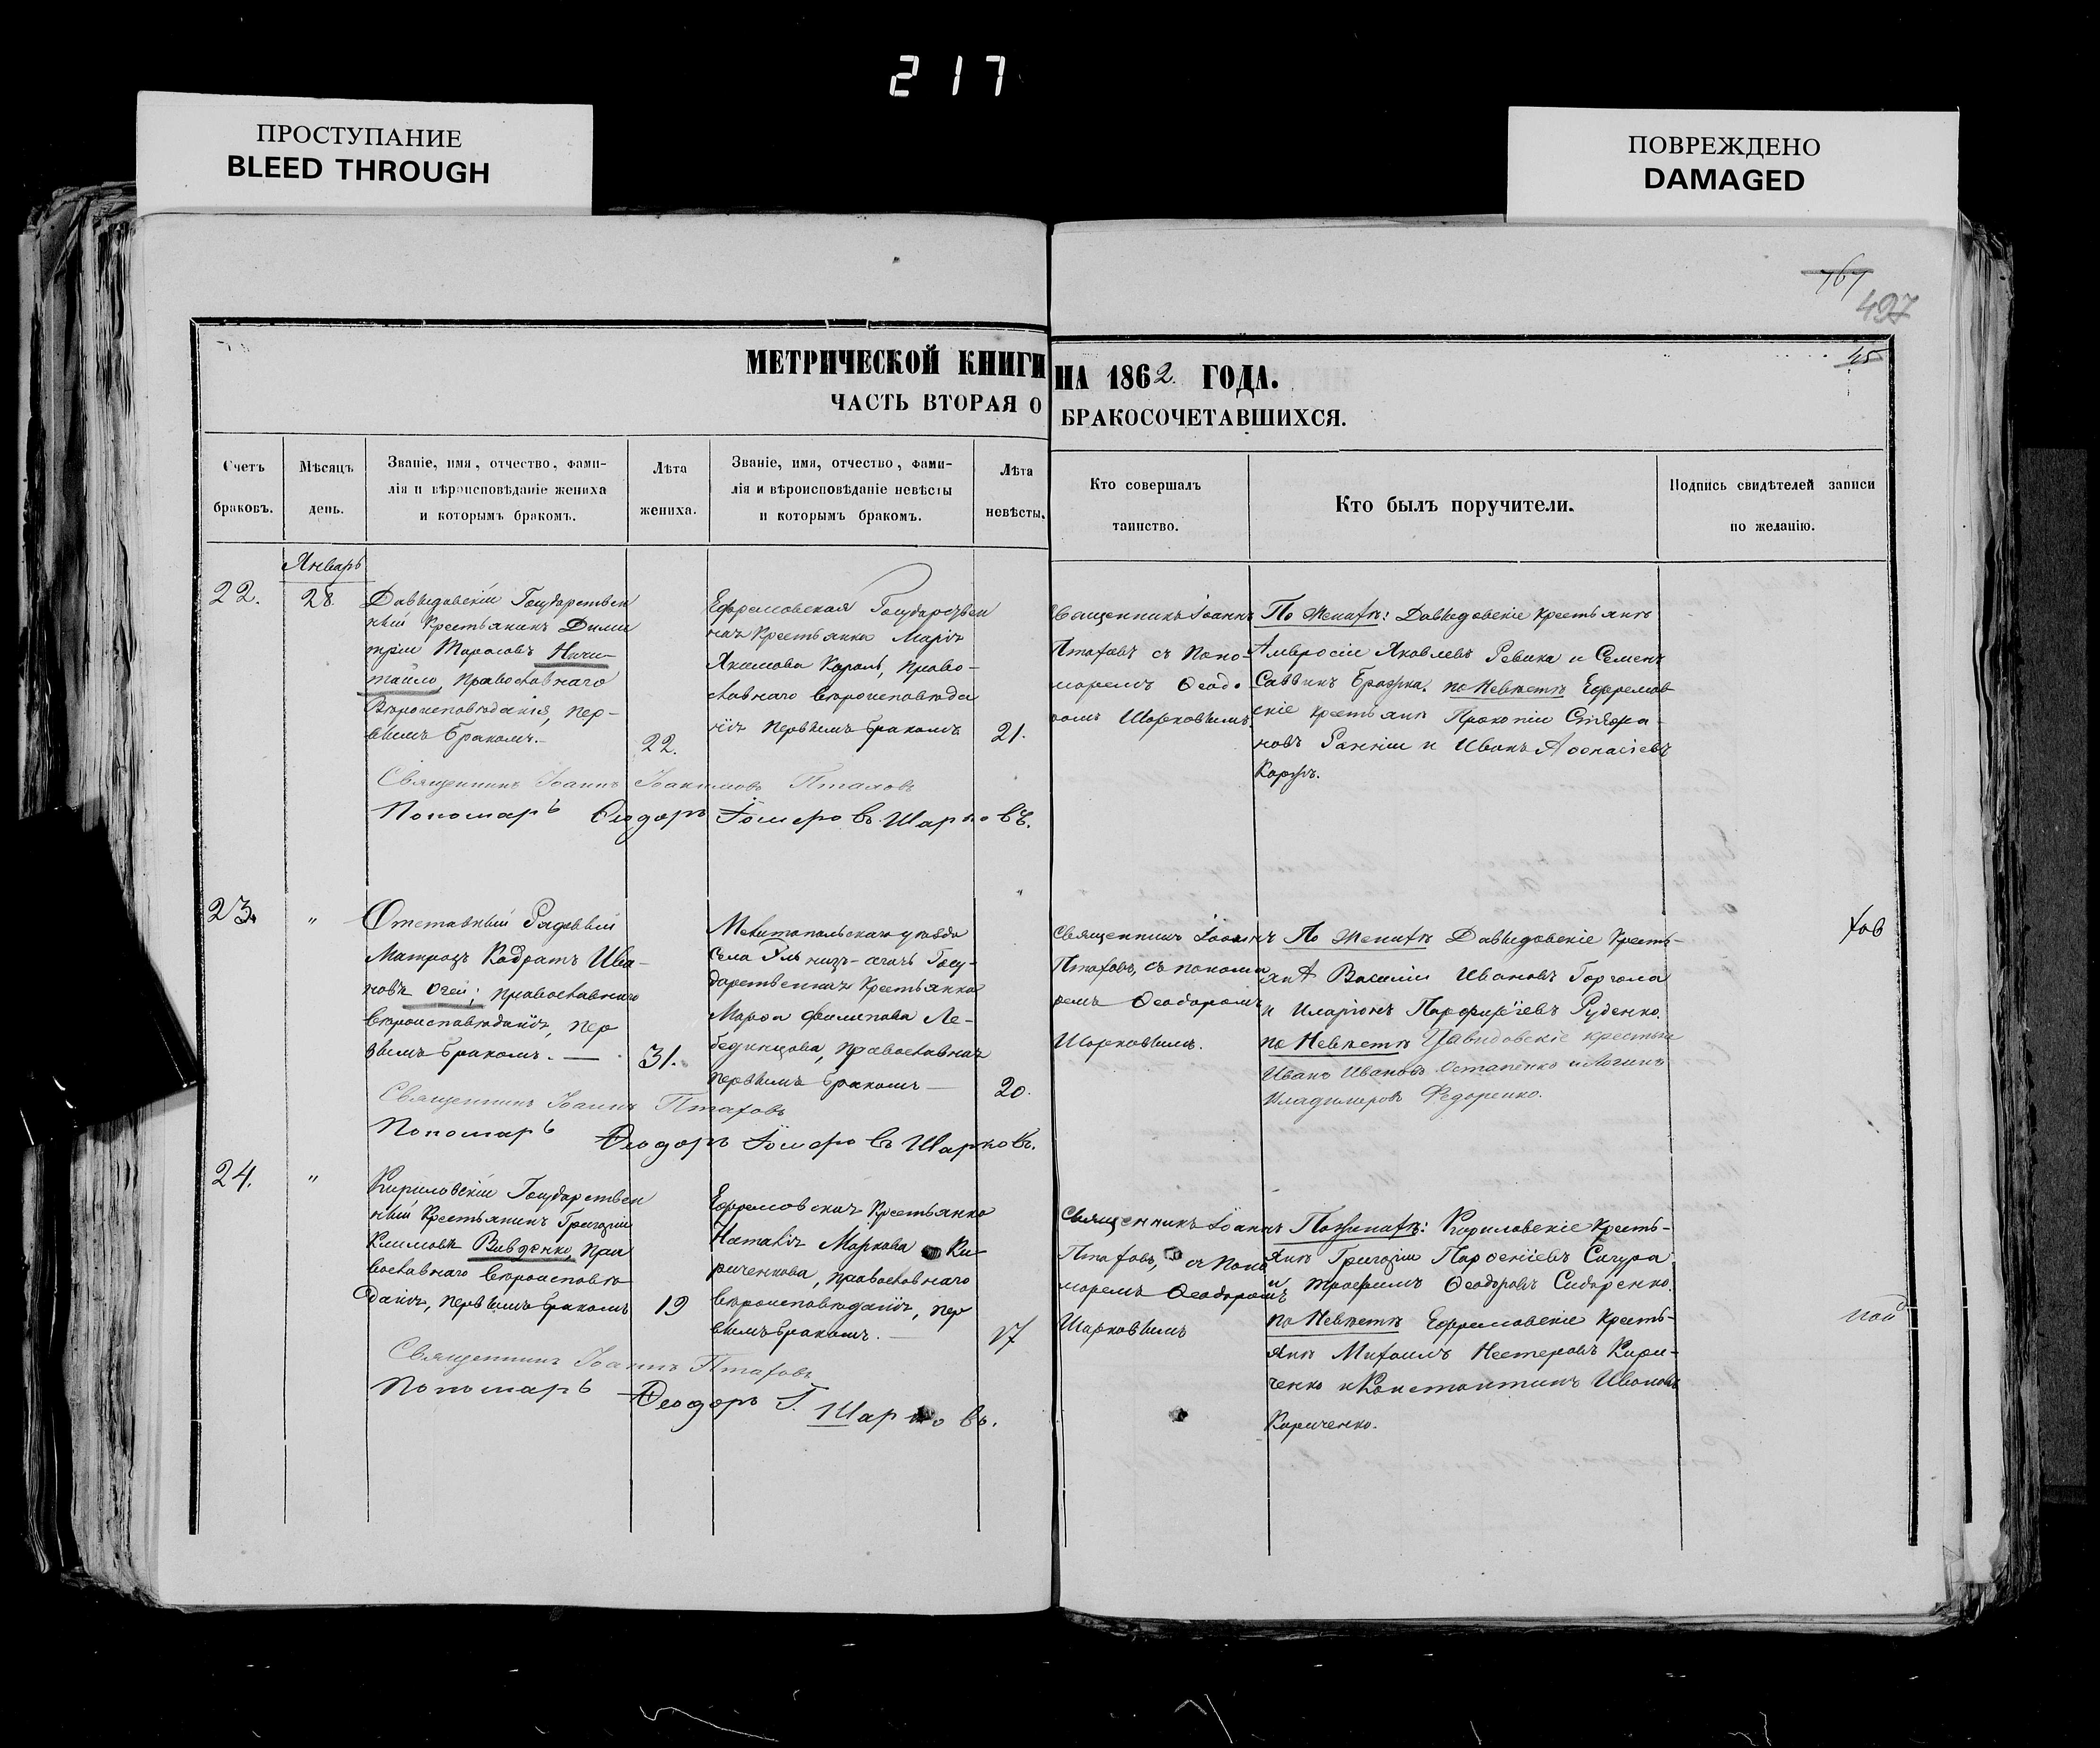 217
ПРОСТУПАНИЕ
BLEED THROUGH
ПОВРЕЖДЕНО
DAMAGED
767
427
45
МЕТРИЧЕСКОЙ КНИГИ НА 1862 ГОДА.
ЧАСТЬ ВТОРАЯ О БРАКОСОЧЕТАВШИХСЯ.
Счетъ браковъ.
Мѣсяцъ день.
Званіе, имя, отчество, фами-
лія и вѣроисповѣданіе жениха
и которымъ бракомъ.
Лѣта жениха.
Званіе, имя, отчество, фами-
лія и вѣроисповѣданіе невѣсты
и которымъ бракомъ.
Лѣта невѣсты.
Кто совершалъ
таинство.
Кто былъ поручители.
Подпись свидѣтелей записи
по желанію.
Январь
22.
28.
Давыдовскій Государствен
ный Крестьянинъ Дими
трій Тарасовъ Ничи-
тайло, православнаго
Вѣроисповѣданія, пер-
вымъ бракомъ.
22.
Ефремовская Государствен
ная Крестьянка Марія
Якимова Король, право-
славнаго вѣроисповѣда
нія первымъ бракомъ
21.
Священникъ Іоаннъ
Птаховъ съ Поно-
моремъ Ѳеодо
ромъ Шарковымъ.
По Женихѣ: Давыдовскіе крестьяне
Амвросій Яковлевъ Ревика и Семенъ
Саввинъ Бражка. по Невѣстѣ Ефремов
скіе крестьяне Прокопій Стефа-
новъ и Иванъ Аѳонасіевъ
Священникъ Іоаннъ Іоакимовъ Птаховъ
Пономарь Ѳеодоръ Шарковъ.
23.
"
Отставный Рядовый
Матрозъ Кадратъ Ива-
новъ Огей; православнаго
вѣроисповѣданія, пер
вымъ бракомъ.
31.
Мелитопольскаго уѣзда
Села Госу-
дарственная Крестьянка
Марѳа Филипова Ле-
бединцова, православная
первымъ бракомъ
20.
Священникъ Іоаннъ
Птаховъ, съ понома
ремъ Ѳеодоромъ
Шарковымъ.
По Женихѣ Давыдовскіе Кресть-
яне Василій Ивановъ Горгола
и Иларіонъ Парфиріевъ Руденко.
по Невѣстѣ Давидовскіе крестьяне
Иванъ Ивановъ Остапенко и Логинъ
Владимеровъ Федоренко.
Священникъ Іоаннъ Птаховъ
Пономарь Ѳеодоръ Шарковъ.
24.
"
Кириловскій Государствен
ный Крестьянинъ Григорій
Климовъ Вивденко, пра
вославнаго вѣроисповѣ
данія, первымъ бракомъ
19
Ефремовская Крестьянка
Наталія Маркова Ки-
риченкова, православнаго
вѣроисповѣданія, пер
вымъ бракомъ.
17
Священникъ Іоаннъ
Птаховъ, съ Поно
моремъ Ѳеодоромъ
Шарковымъ
По Женихѣ: Кириловскіе Кресть-
яне Григорій Парѳеніевъ Сигура
и Трофимъ Ѳеодоровъ Сидоренко.
по Невѣстѣ Ефремовскіе Кресть-
яне Михаилъ Нестеровъ Кири-
ченко и Константинъ Ивановъ
Кириченко.
Священникъ Іоаннъ Птаховъ
Пономарь Ѳеодоръ Г. Шарковъ.